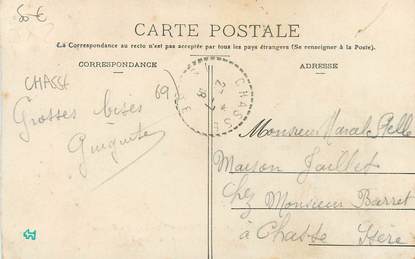 50 €
CARTE POSTALE
La Correspondance au recto n'est pas acceptée par tous les pays étrangers (Se renseigner à la Poste).
CORRESPONDANCE
ADRESSE
CHASSE
CHASSE
69
Grosses bises
Guiguite
Monsieur
Maison Jaillet
chez Monsieur Barret
à Chasse Isère